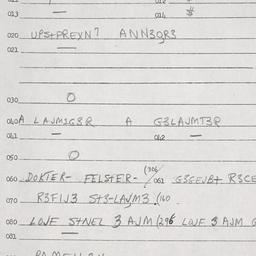 013 — 014 #
020 UPS+PREXN? ANN3QR3
021 —
030 O
040A LAJM1G8R A G3LAJMT3R
041 — 042 —
050 O
060 DOKTER- FELSTER- (706/ 061 G3GEVB+ R3CE
070 R3FIJ3 S+3-LAJM3 (160
080 LOVF S+NEL 3 AJM (296 LOVF 3 AJM G
081